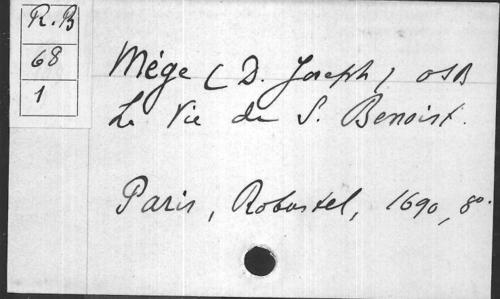 R.B
68
1
Mége (D. Joseph) OSB
La Vie de S. Benoist.
Paris, Robustel, 1690, 8º.